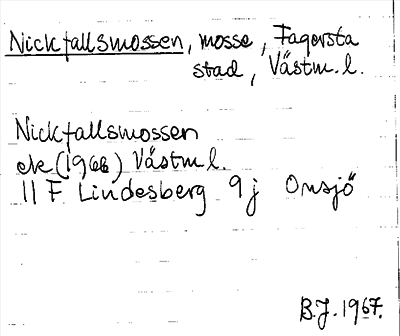 Nickfallsmossen, mosse, Fagersta
stad, Västm. l.
Nickfallsmossen
ek (1966) Västm l.
11 F Lindesberg 9 j Onsjö
B.J. 1967.